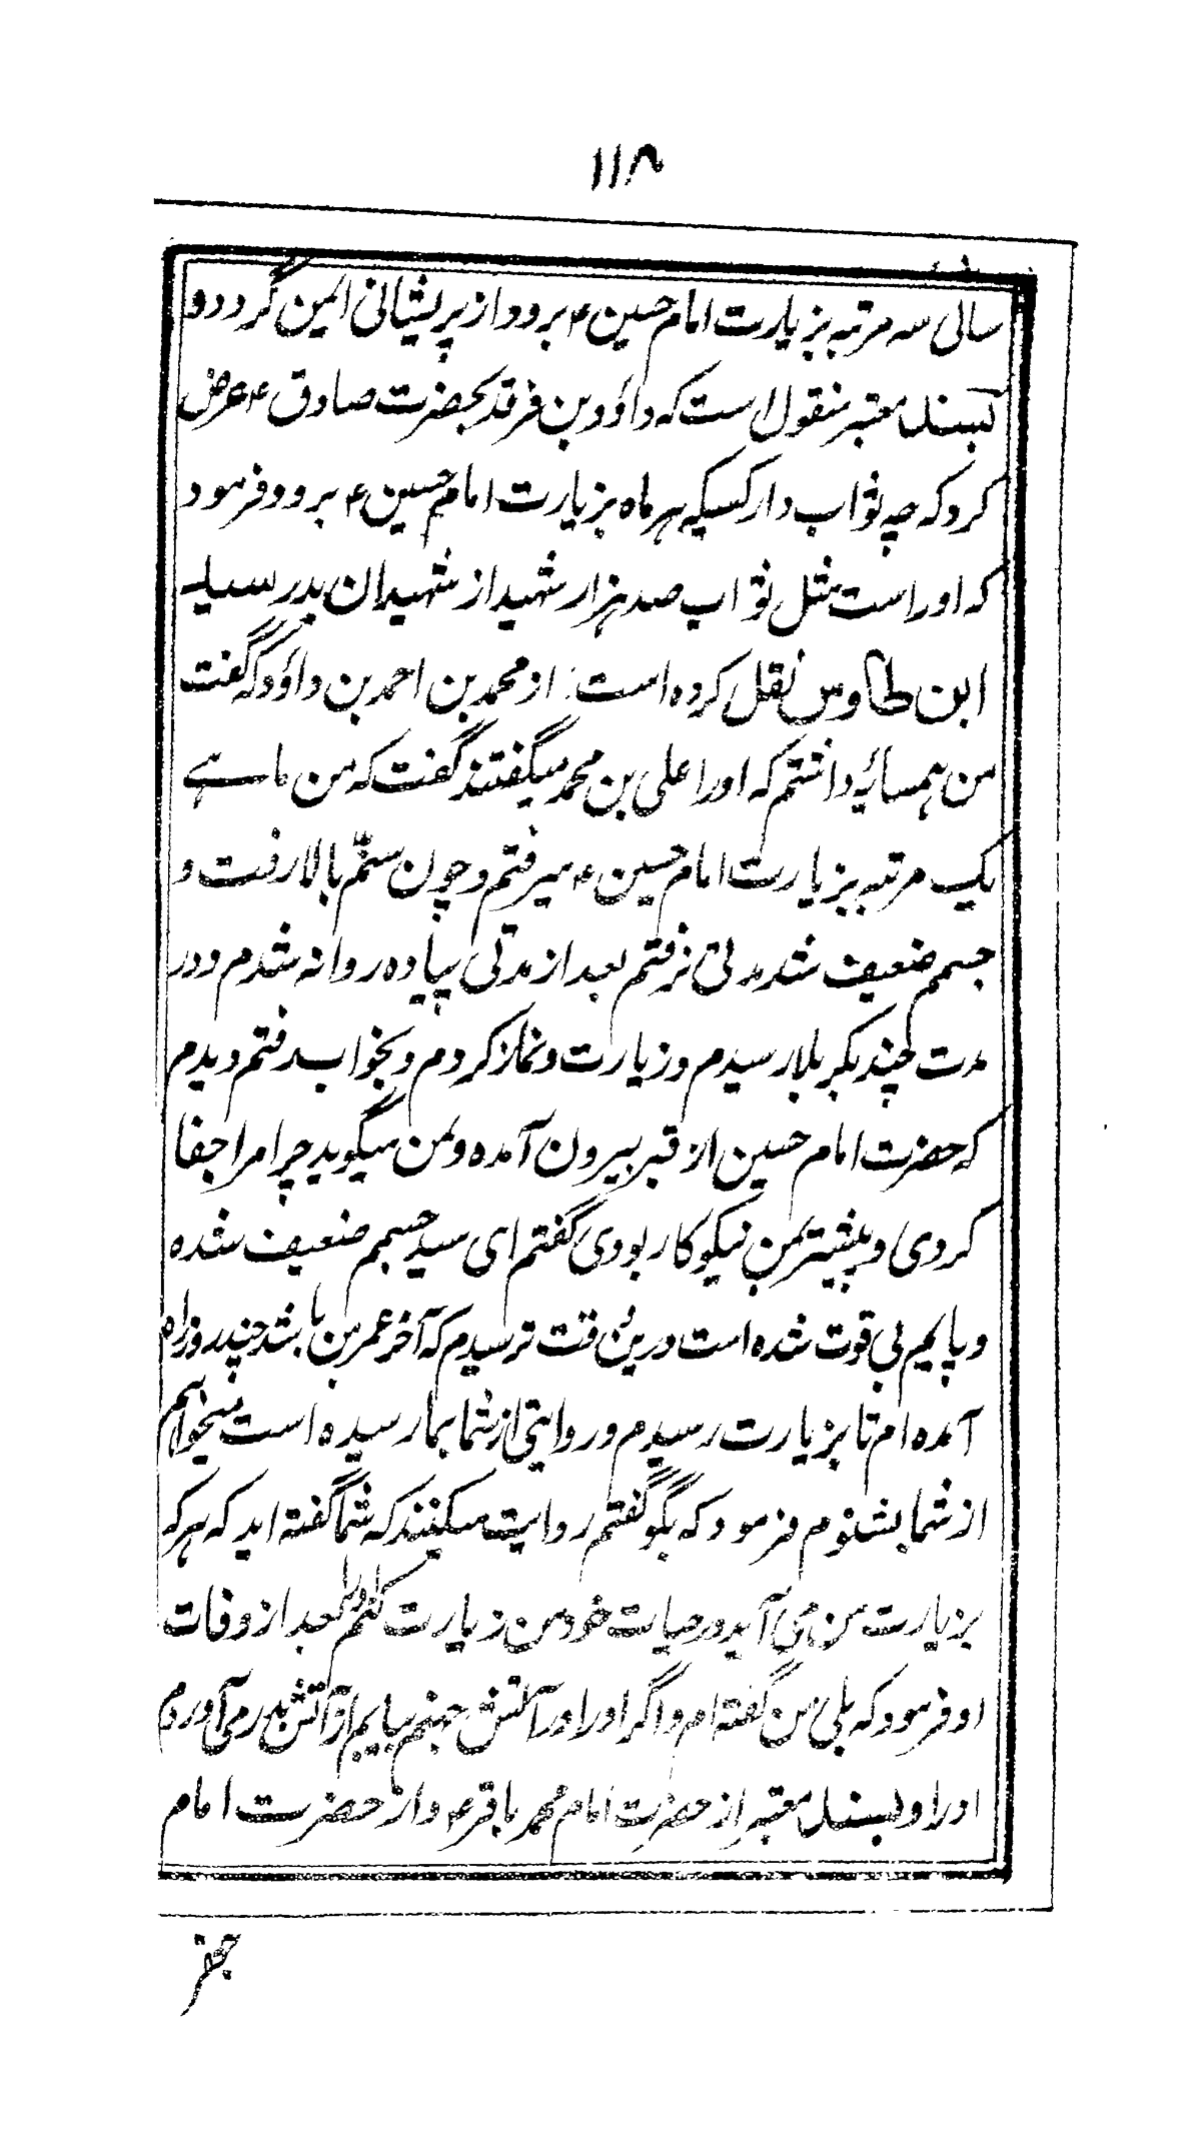 ۱۱۸
سالی سه مرتبه بزیارت امام حسین ؑ برود از پریشانی ایمن گردد و
بسند معتبر منقول است که داؤد بن فرقد بحضرت صادق ؑ عرض
کرد که چه ثواب دارد کسیکه هر ماه بزیارت امام حسین ؑ برود فرمود
که او راست مثل ثواب صد هزار شهید از شهیدان بدر سید
ابن طاوس نقل کرده است از محمد بن احمد بن داؤد که گفت
من همسایۂ داشتم که او را علی بن محمد میگفتند گفت که من ماهے
یک مرتبه بزیارت امام حسین ؑ میرفتم و چون سنّم بالا رفت و
جسمم ضعیف شد مدتی نرفتم بعد از مدتی پیاده روانه شدم و در
مدت چند بکربلا رسیدم و زیارت و نماز کردم و بخواب رفتم دیدم
که حضرت امام حسین از قبر بیرون آمده و بمن میگوید چرا مرا جفا
کردی و پیشتر بمن نیکوکار بودی گفتم ای سید جسمم ضعیف شده
و پایم بی قوت شده است و درین وقت ترسیدم که آخر عمر من باشد چند روز راه
آمده ام تا بزیارت رسیدم و روایتی از شما بما رسیده است میخواهم
از شما بشنوم فرمود که بگو گفتم روایت میکنند که شما گفته اید که هر که
بزیارت من می آید در حیات خود من زیارت کنم او را بعد از وفات
او فرمود که بلی من گفته ام و اگر او را در آتش جهنم بیابم از آتش بدر می آورم
او را و بسند معتبر از حضرت امام محمد باقر ؑ و از حضرت امام
جعفر